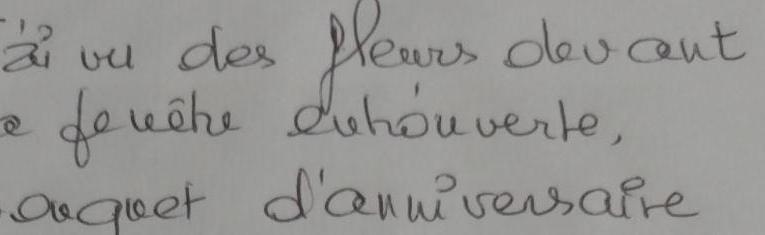 ai vu des fleurs devant
e fenêtre entrouverte,
ouquet d'anniversaire